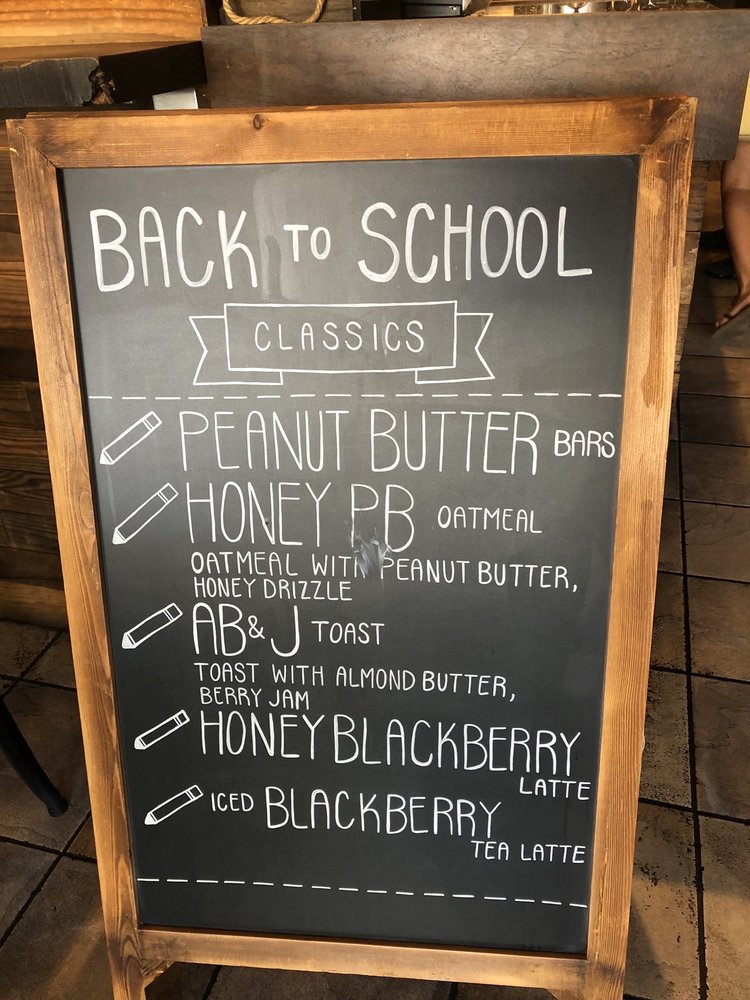 BACK TO SCHOOL
CLASSICS
PEANUT BUTTER BARS
HONEY PB OATMEAL
OATMEAL WITH PEANUT BUTTER,
HONEY DRIZZLE
AB & J TOAST
TOAST WITH ALMOND BUTTER,
BERRY JAM
HONEY BLACKBERRY
LATTE
ICED BLACKBERRY
TEA LATTE